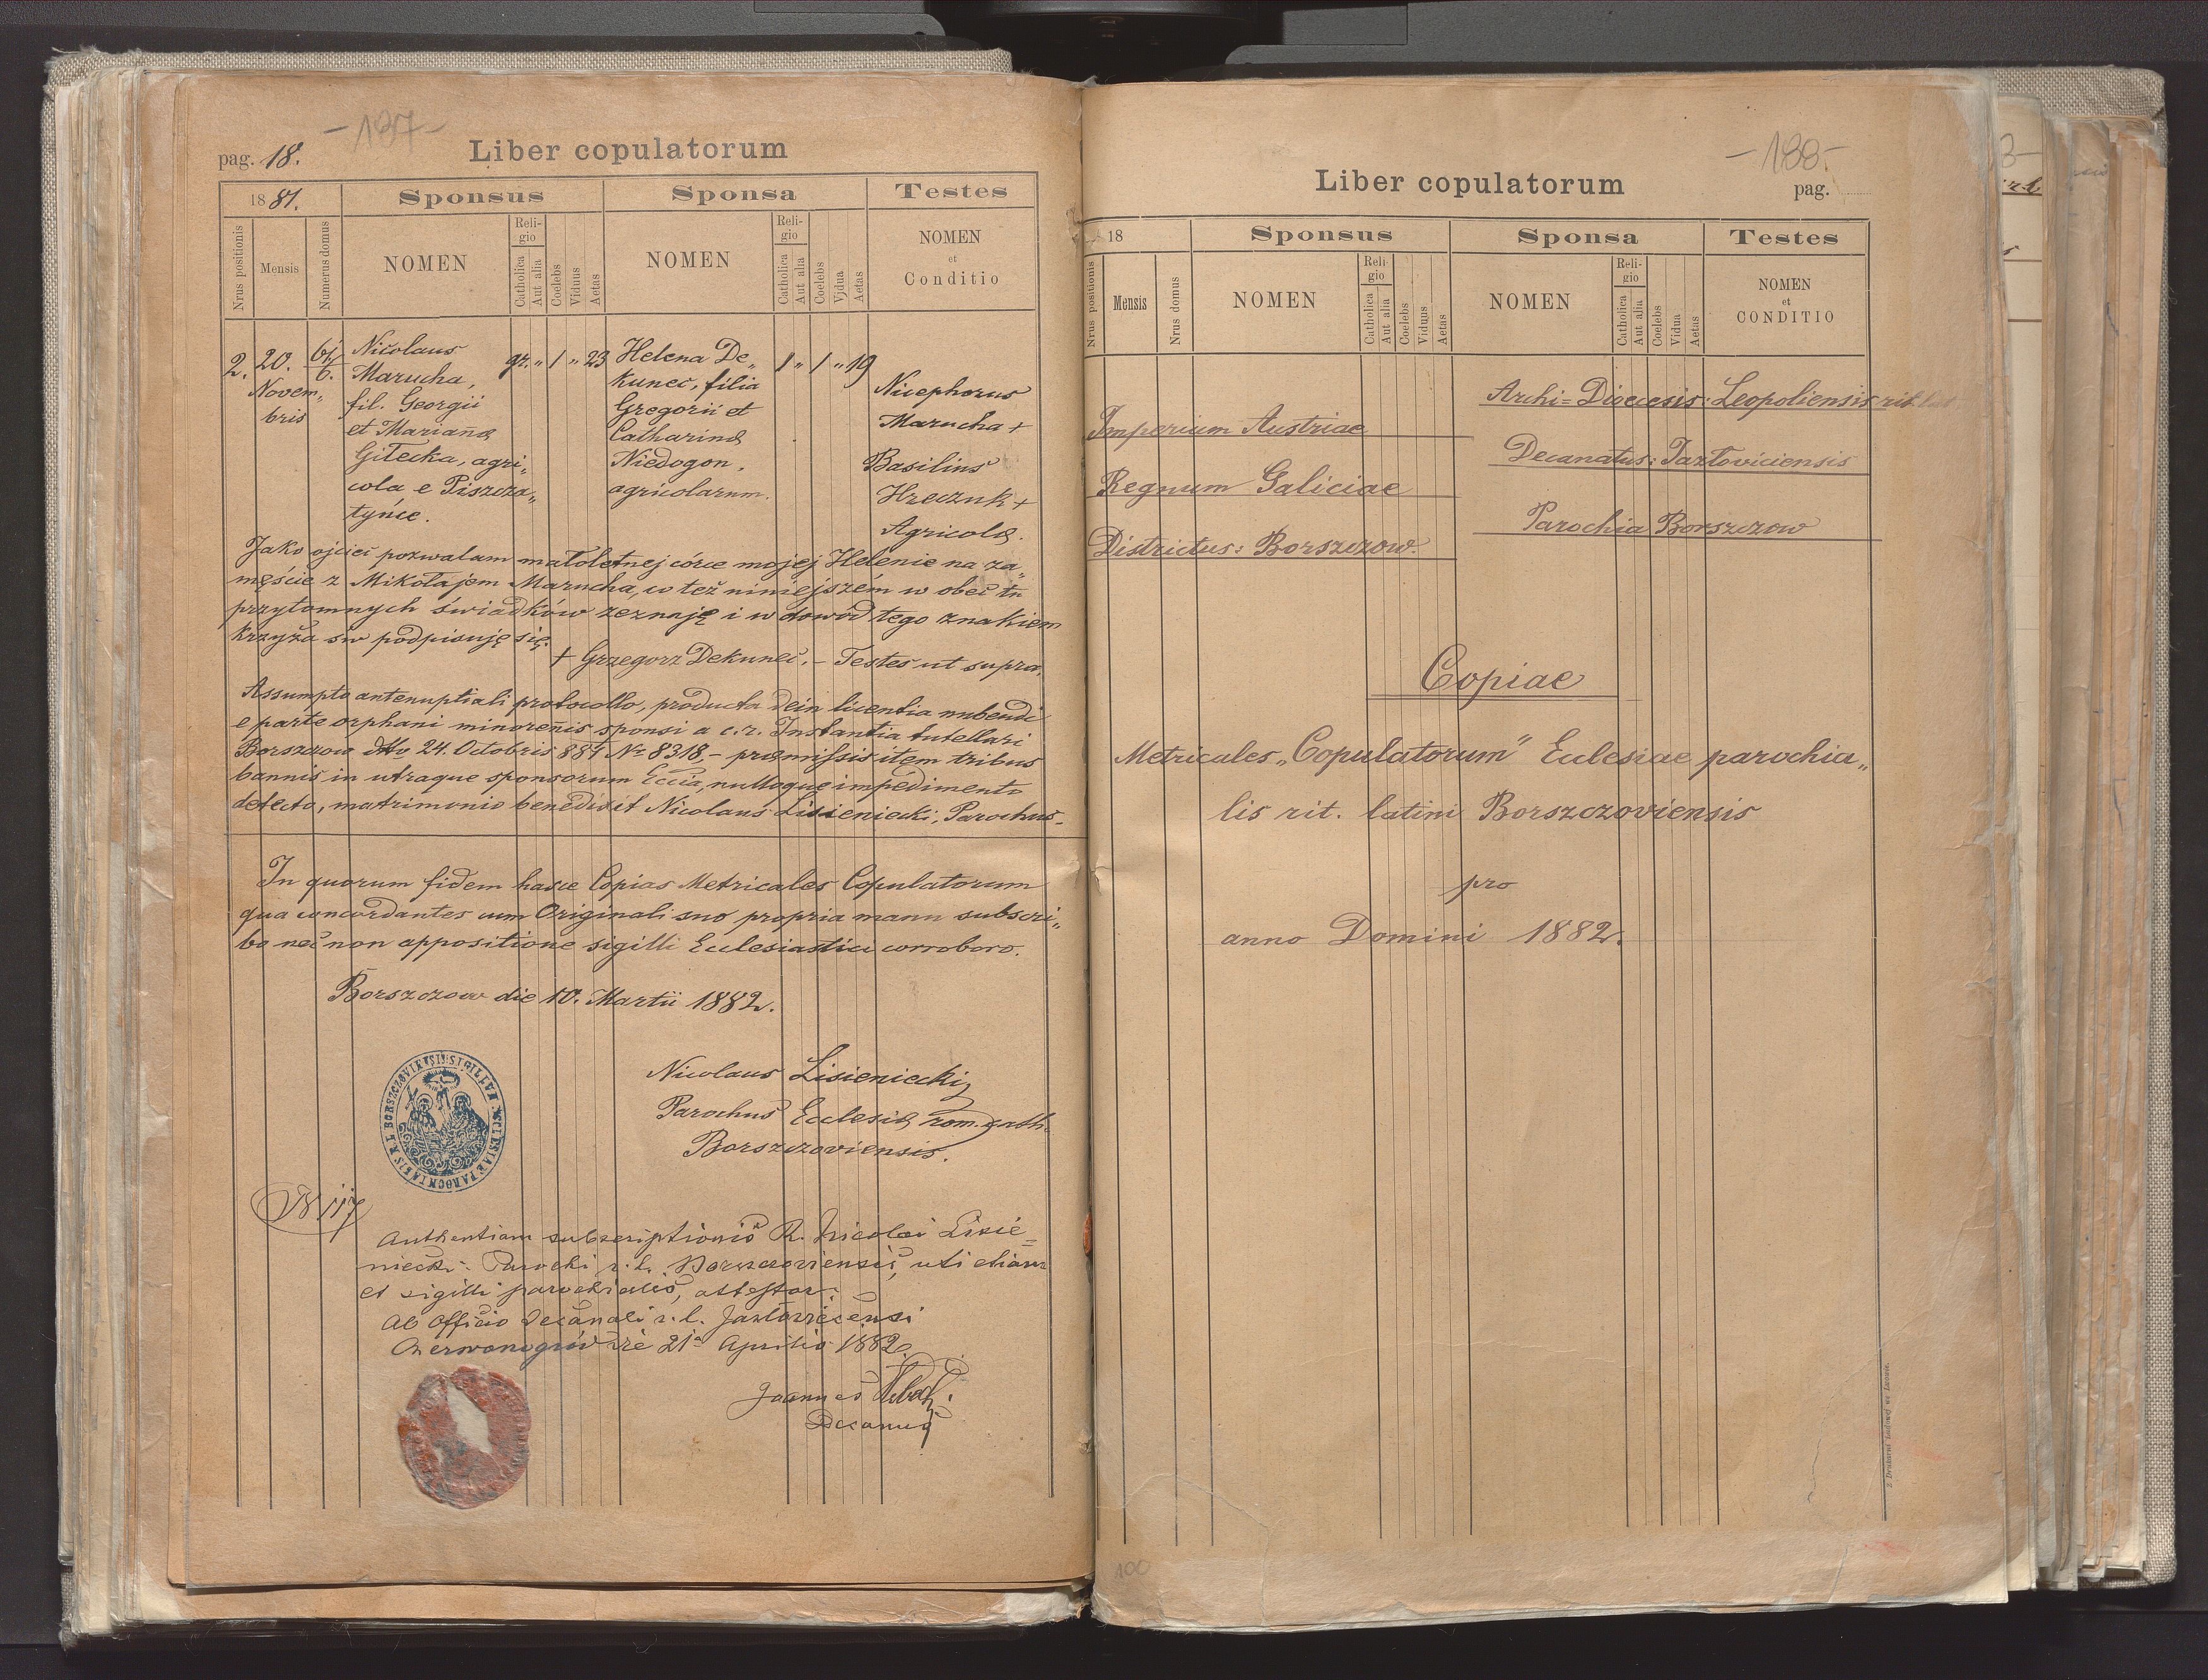 - 187 -
pag. 18.
Liber copulatorum
1881.
Sponsus
Sponsa
Testes
Nrus positionis
Mensis
Numerus domus
NOMEN
Religio
Catholica
Aut alia
Coelebs
Viduus
Aetas
NOMEN
Religio
Catholica
Aut alia
Coelebs
Vidua
Aetas
NOMEN
et
Conditio
2.
20.
Novem„
bris
61/6.
Nicolaus
Marucha,
fil. Georgii
et Marianæ
Gitecka, agri„
cola e Piszcza„
tyńce.
gr. „ 1 „ 23
Helena De„
kuneć, filia
Gregorii et
Catharinæ
Niedogon,
agricolarum.
1 „ 1 „ 19
Nicephorus
Marucha +
Basilius
Hreczuk +
Agricolæ.
Jako ojciec pozwalam małoletnej córce mojej Helenie na za„
męście z Mikołajem Marucha, co też niniejszém w obec tu
przytomnych świadków zeznaję i w dowód tego znakiem
krzyża św podpisuję się.
+ Grzegorz Dekuneć. – Testes ut supra.
Assumpto antenuptiali protocollo, producta dein licentia nubendi
e parte orphani minorenis sponsi a c. r. Instantia tutellari
Borszczow dto 24. Octobris 881 No 8318, – præmissis item tribus
bannis in utraque sponsorum Eccia, nulloque impedimento
detecto, matrimonio benedixit Nicolaus Lisieniecki, Parochus –
In quorum fidem hasce Copias Metricales Copulatorum
qua concordantes cum Originali suo propria manu subscri„
bo nec non appositione sigilli Ecclesiastici corroboro.
Borszczow die 10. Martii 1882.
SIGILLUM ECCLESIAE PAROCHIALIS R. L. BORSZCZOVIENSIS
Nicolaus Lisieniecki
Parochus Ecclesiæ rom. cath.
Borszczoviensis.
N 117
Authentiam subscriptionis R. Nicolai Lisie=
niecki Parochi r. l. Borszczoviensis, uti etiam
et sigilli parochialis, attestor.
Ab Officio Decanali r. l. Jazłoviecensi
Czerwonogród die 21a Aprilis 1882.
Joannes
Decanus
- 188 -
Liber copulatorum
pag.
18
Sponsus
Sponsa
Testes
Nrus positionis
Mensis
Nrus domus
NOMEN
Religio
Catholica
Aut alia
Coelebs
Viduus
Aetas
NOMEN
Religio
Catholica
Aut alia
Coelebs
Vidua
Aetas
NOMEN
et
CONDITIO
Imperium Austriae
Regnum Galiciae
Districtus: Borszczow.
Archi=Dioecesis: Leopoliensis rit. lat
Decanatus: Jazłoviciensis
Parochia Borszczow
Copiae
Metricales „Copulatorum" Eclesiae parochia„
lis rit. latini Borszczoviensis
pro
anno Domini 1882.
Z Drukarni Ludowej we Lwowie.
100